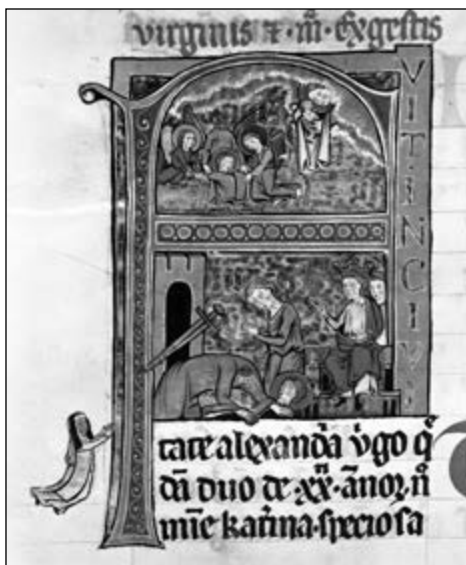 virginis ⁊·m̄·Exgestis
FVIT·INCIVI
tate alexand̄a v̊go q̊
dā duo de·xx̊·ānoꝝ n̊
mīe kat̄ina·speciosa